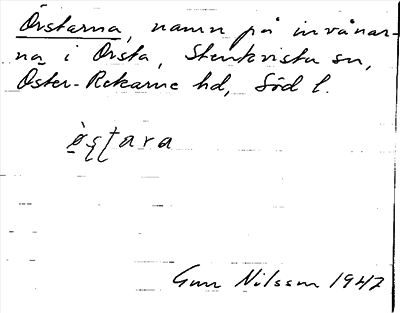 Örstarna, namn på invånar-
na i Örsta, Stenkvista sn,
Öster-Rekarne hd, Söd l.
ö̀şţara
Gun Nilsson 1947